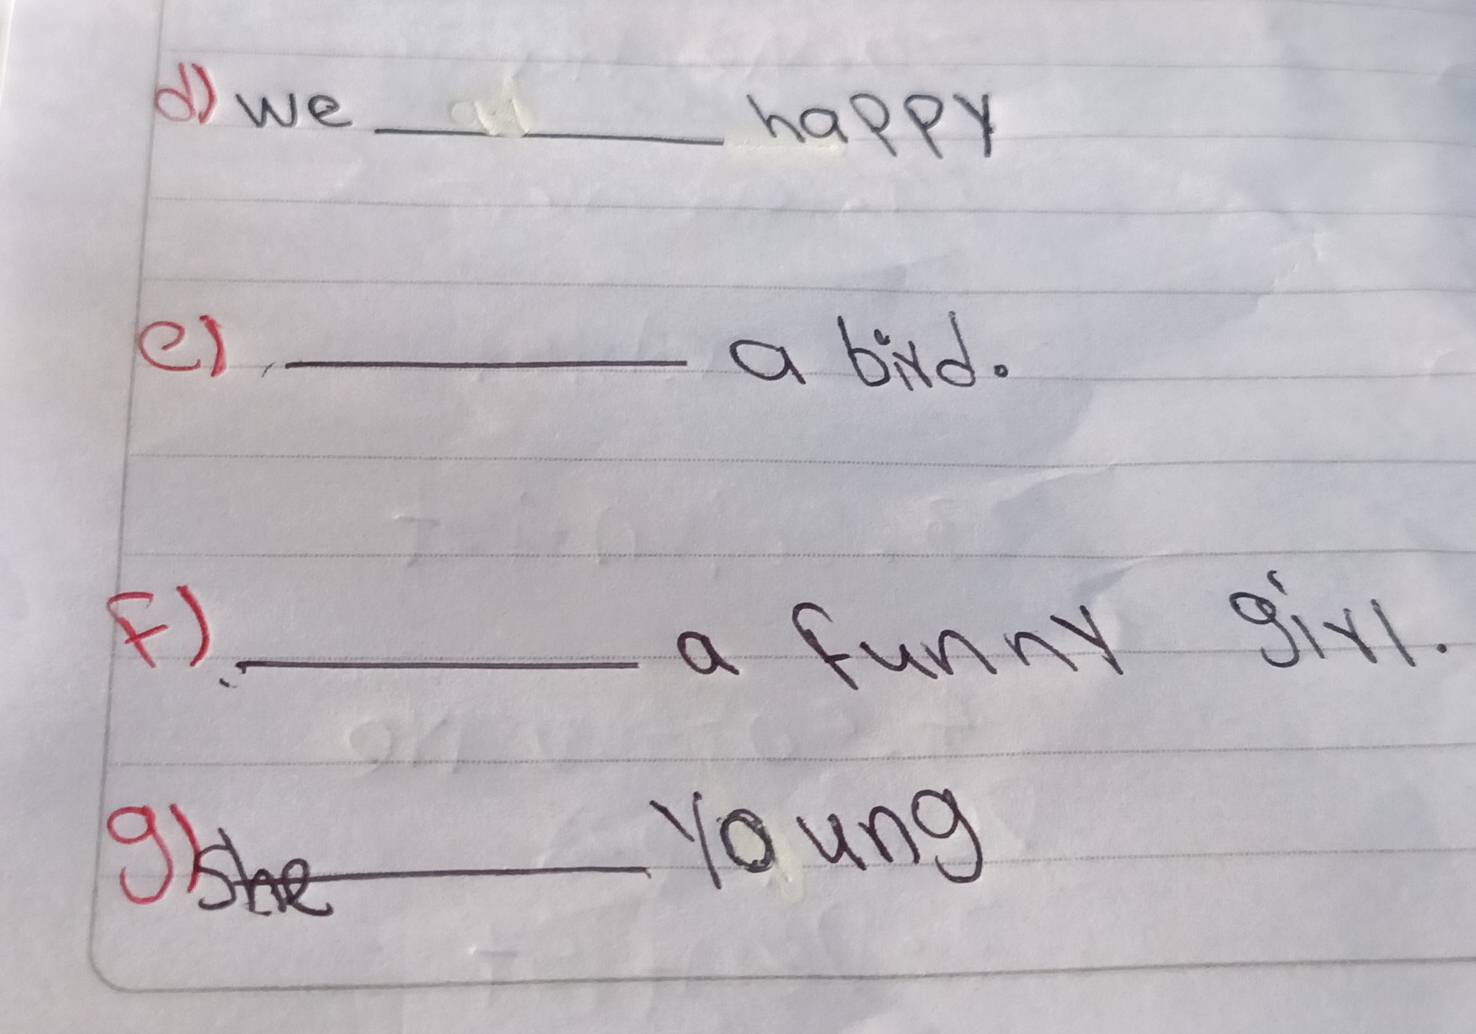 d) we ________ happy
e) ________ a bird.
f) ________ a funny girl.
g) She ________ young